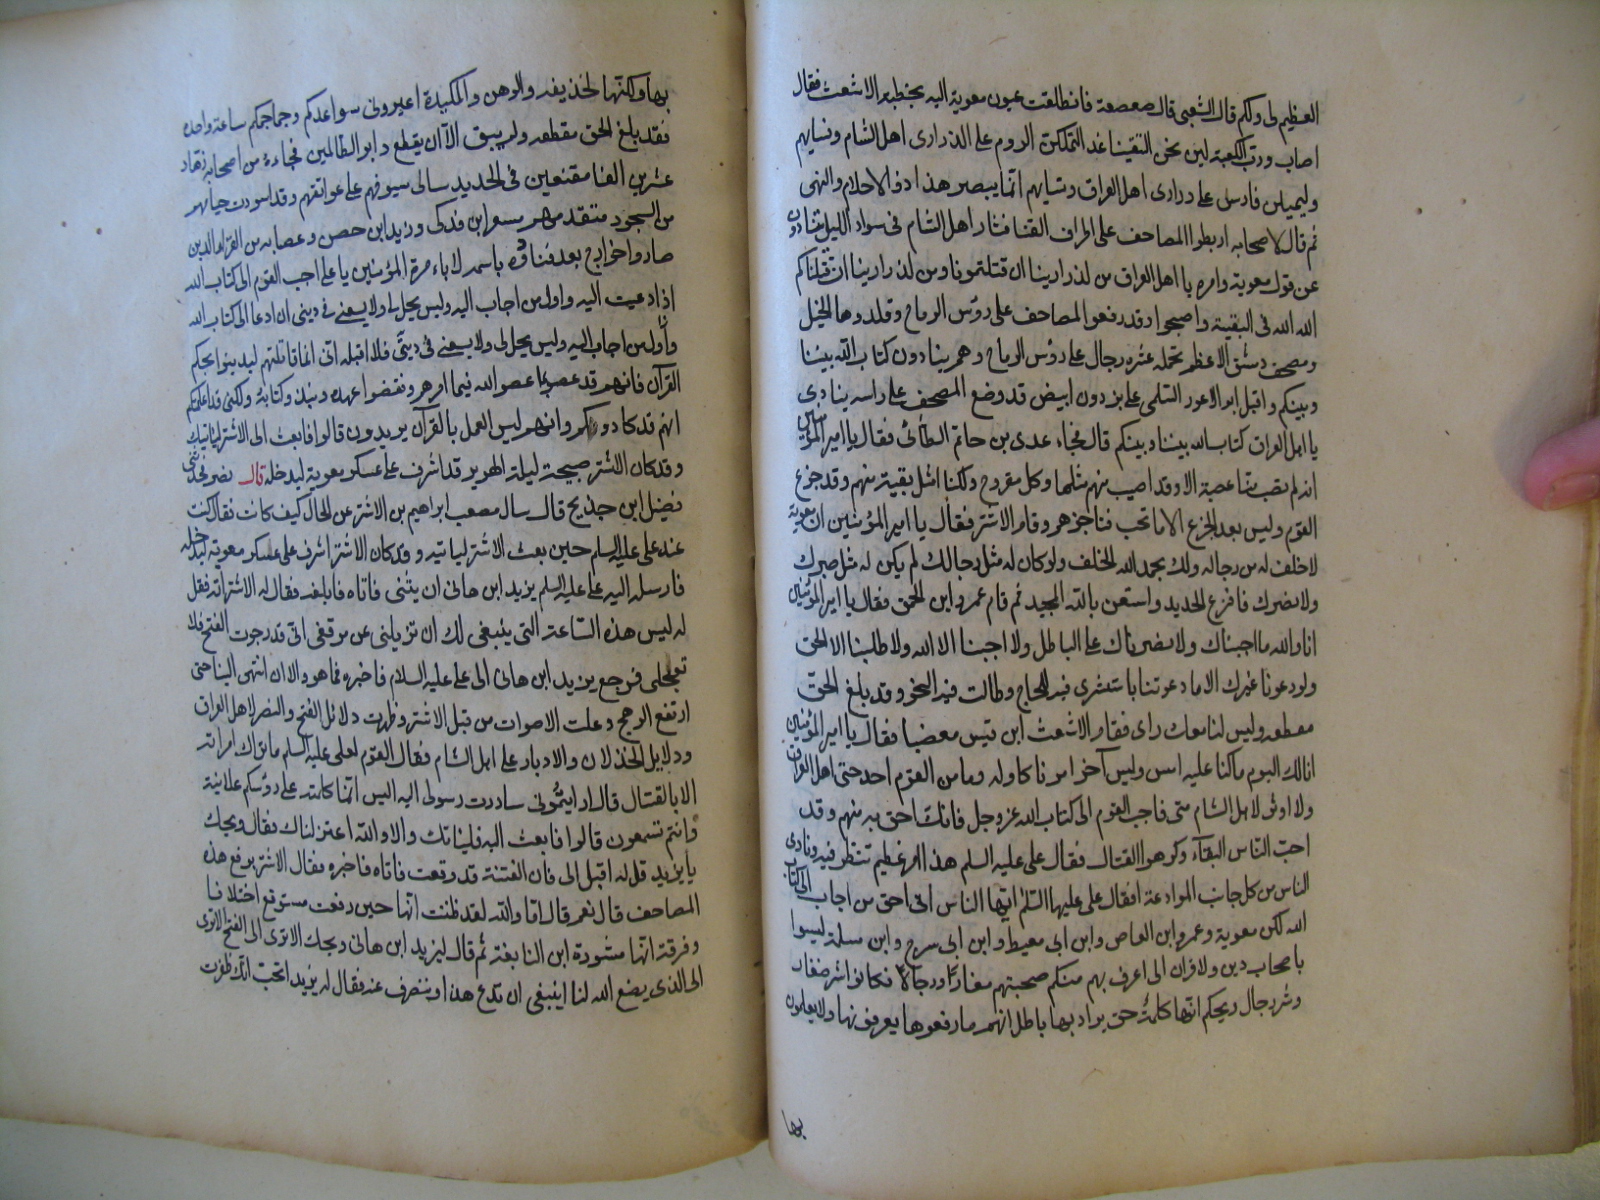 العظيم لى ولكم قال الشعبى قال صعصعة فانطلقت عيون معوية اليه بخطبة الاشعث فقال
اصاب ورب الكعبة لئن نحن التقينا غدا لتمكن الروم على الذرارى اهل الشام ونسايهم
وليميلن فارس على درارى اهل العراق ونسايهم انما يبصر هذا ذو الاحلام والنهى
ثم قال لاصحابه اربطوا المصاحف على اطراف القنا فثار اهل الشام فى سواد الليل ينادون
عن قول معوية وامره يا اهل العراق من لذرارينا ان قتلتمونا ومن لذراريكم ان قتلناكم
الله الله فى البقية واصبحوا قد رفعوا المصاحف على رؤس الرماح وقلدوها الخيل
ومصحف دمشق الاعظم تحمله عشرة رجال على رؤس الرماح وهم ينادون كتاب الله بيننا
وبينكم واقبل ابو الاعور السلمى على برذون ابيض قد وضع المصحف على راسه ينادى
يا اهل العراق كتاب الله بيننا وبينكم قال فجاء عدى بن حاتم الطائى فقال يا امير المؤمنين
انه لم يصب منا عصبة الا وقد اصيب منهم مثلها وكل مقروح ولكنا امثل بقية منهم وقد جزع
القوم وليس بعد الجزع الا ما تحب فناجزهم وقام الاشتر فقال يا امير المؤمنين ان معوية
لا خلف له من رجاله ولك بحمد الله الخلف ولو كان له مثل رجالك لم يكن له مثل صبرك
ولا بصرك فاقرع الحديد واستعن بالله المجيد ثم قام عمرو ابن الحمق فقال يا امير المؤمنين
انا والله ما اجبناك ولا نصرناك على الباطل ولا اجبنا الا الله ولا طلبنا الا الحق
ولو دعونا غيرك الا ما دعوتنا باستشرى فيه اللجاج وطالت فيه النجوى وقد بلغ الحق
مقطعه وليس لنا معك راى فقام الاشعث ابن قيس مغضبا فقال يا امير المؤمنين
انا لك اليوم ما كنا عليه امس وليس آخر امرنا كاوله وما من القوم احد حتى اهل العراق
ولا اوتر لاهل الشام منى فاجب القوم الى كتاب الله عز وجل فانك احق به منهم وقد
احب الناس البقاء وكرهوا القتال فقال على عليه السلم هذا امر عظيم ننظر فيه ونادى
الناس من كل جانب الموادعة فقال على عليه السلم ايها الناس انى احق من اجاب الى كتاب
الله لكن معوية وعمرو ابن العاص وابن ابى معيط وابن ابى سرح وابن مسلمة ليسوا
باصحاب دين ولا قران انى اعرف بهم منكم صحبتهم صغارا ورجالا فكانوا شر صغار
وشر رجال ويحكم انها كلمة حق يراد بها باطل انهم ما رفعوها يعرفونها ولا يعلمون
بها
بها ولكنها الخديعة والوهن والمكيدة اعيرونى سواعدكم وجماجمكم ساعة واحدة
فقد بلغ الحق مقطعه ولم يبق الا ان يقطع دابر الظالمين فجاءه من اصحابه زهاد
عشرين الفا مقنعين فى الحديد سالى سيوفهم على عواتقهم وقد اسودت جباههم
من السجود متقدمهم مسعر ابن فدكى وزيد ابن حصن وعصابة من القراء الذين
صاروا خوارج بعد فنادوه باسمه لا باءمرة المؤمنين يا على اجب القوم الى كتاب الله
اذا دعيت اليه واول من اجاب اليه وليس يحل لى ولا يسعنى فى دينى ان ادعا الى كتاب الله
وأول من اجاب اليه وليس يحل لى ولا يسعنى فى دينى فلا اقبله انى انما قاتلتهم ليدينوا بحكم
القرآن فانهم قد عصوا الله فيما امرهم ونقضوا عهده ونبذوا كتابه ولكنى قد اعلمتكم
انهم قد كادوكم وانهم ليس العمل بالقرآن يريدون قالوا فابعث الى الاشتر لياتيك
وقد كان الاشتر صبيحة ليلة الهرير قد اشرف على عسكر معوية ليدخله قال نصر فحدثنى
فضيل ابن خديج قال سال مصعب ابراهيم بن الاشتر عن الحال كيف كانت فقال كنت
عند على عليه السلم حين بعث الاشتر لياتيه وقد كان الاشتر اشرف على عسكر معوية ليدخله
فارسل اليه على عليه السلم يزيد ابن هانى ان يتنى فاتاه فابلغه فقال له الاشتر اته فقل
له ليس هذه الساعة التى ينبغى لك ان تزيلنى عن موقفى انى قد رجوت الفتح فلا
تعجلى فرجع يزيد ابن هانى الى على عليه السلام فاخبره فما هو الا ان انتهى الينا حتى
ارتفع الرهج وعلت الاصوات من قبل الاشتر وظهرت دلائل الفتح والنصر لاهل العراق
ودلايل الخذلان والادبار على اهل الشام فقال القوم لعلى عليه السلم ما نراك امرته
الا بالقتال قال ارايتمونى ساررت رسولى اليه اليس انما كلمته على رؤسكم علانية
وانتم تسمعون قالوا فابعث اليه فلياتك والا والله اعتزلناك فقال ويحك
يا يزيد قل له اقبل الى فان الفتنة قد وقعت فاتاه فاخبره فقال الاشتر برفع هذه
المصاحف قال نعم قال اما والله لقد ظننت انها حين رفعت ستوقع اختلافا
وفرقة انها مشورة ابن النابغة ثم قال ليزيد ابن هانى ويحك الا ترى الى الفتح الا ترى
الى الذى يضع الله لنا اينبغى ان ندع هذا وننصرف عنه فقال له يزيد اتحب انك ظفرت